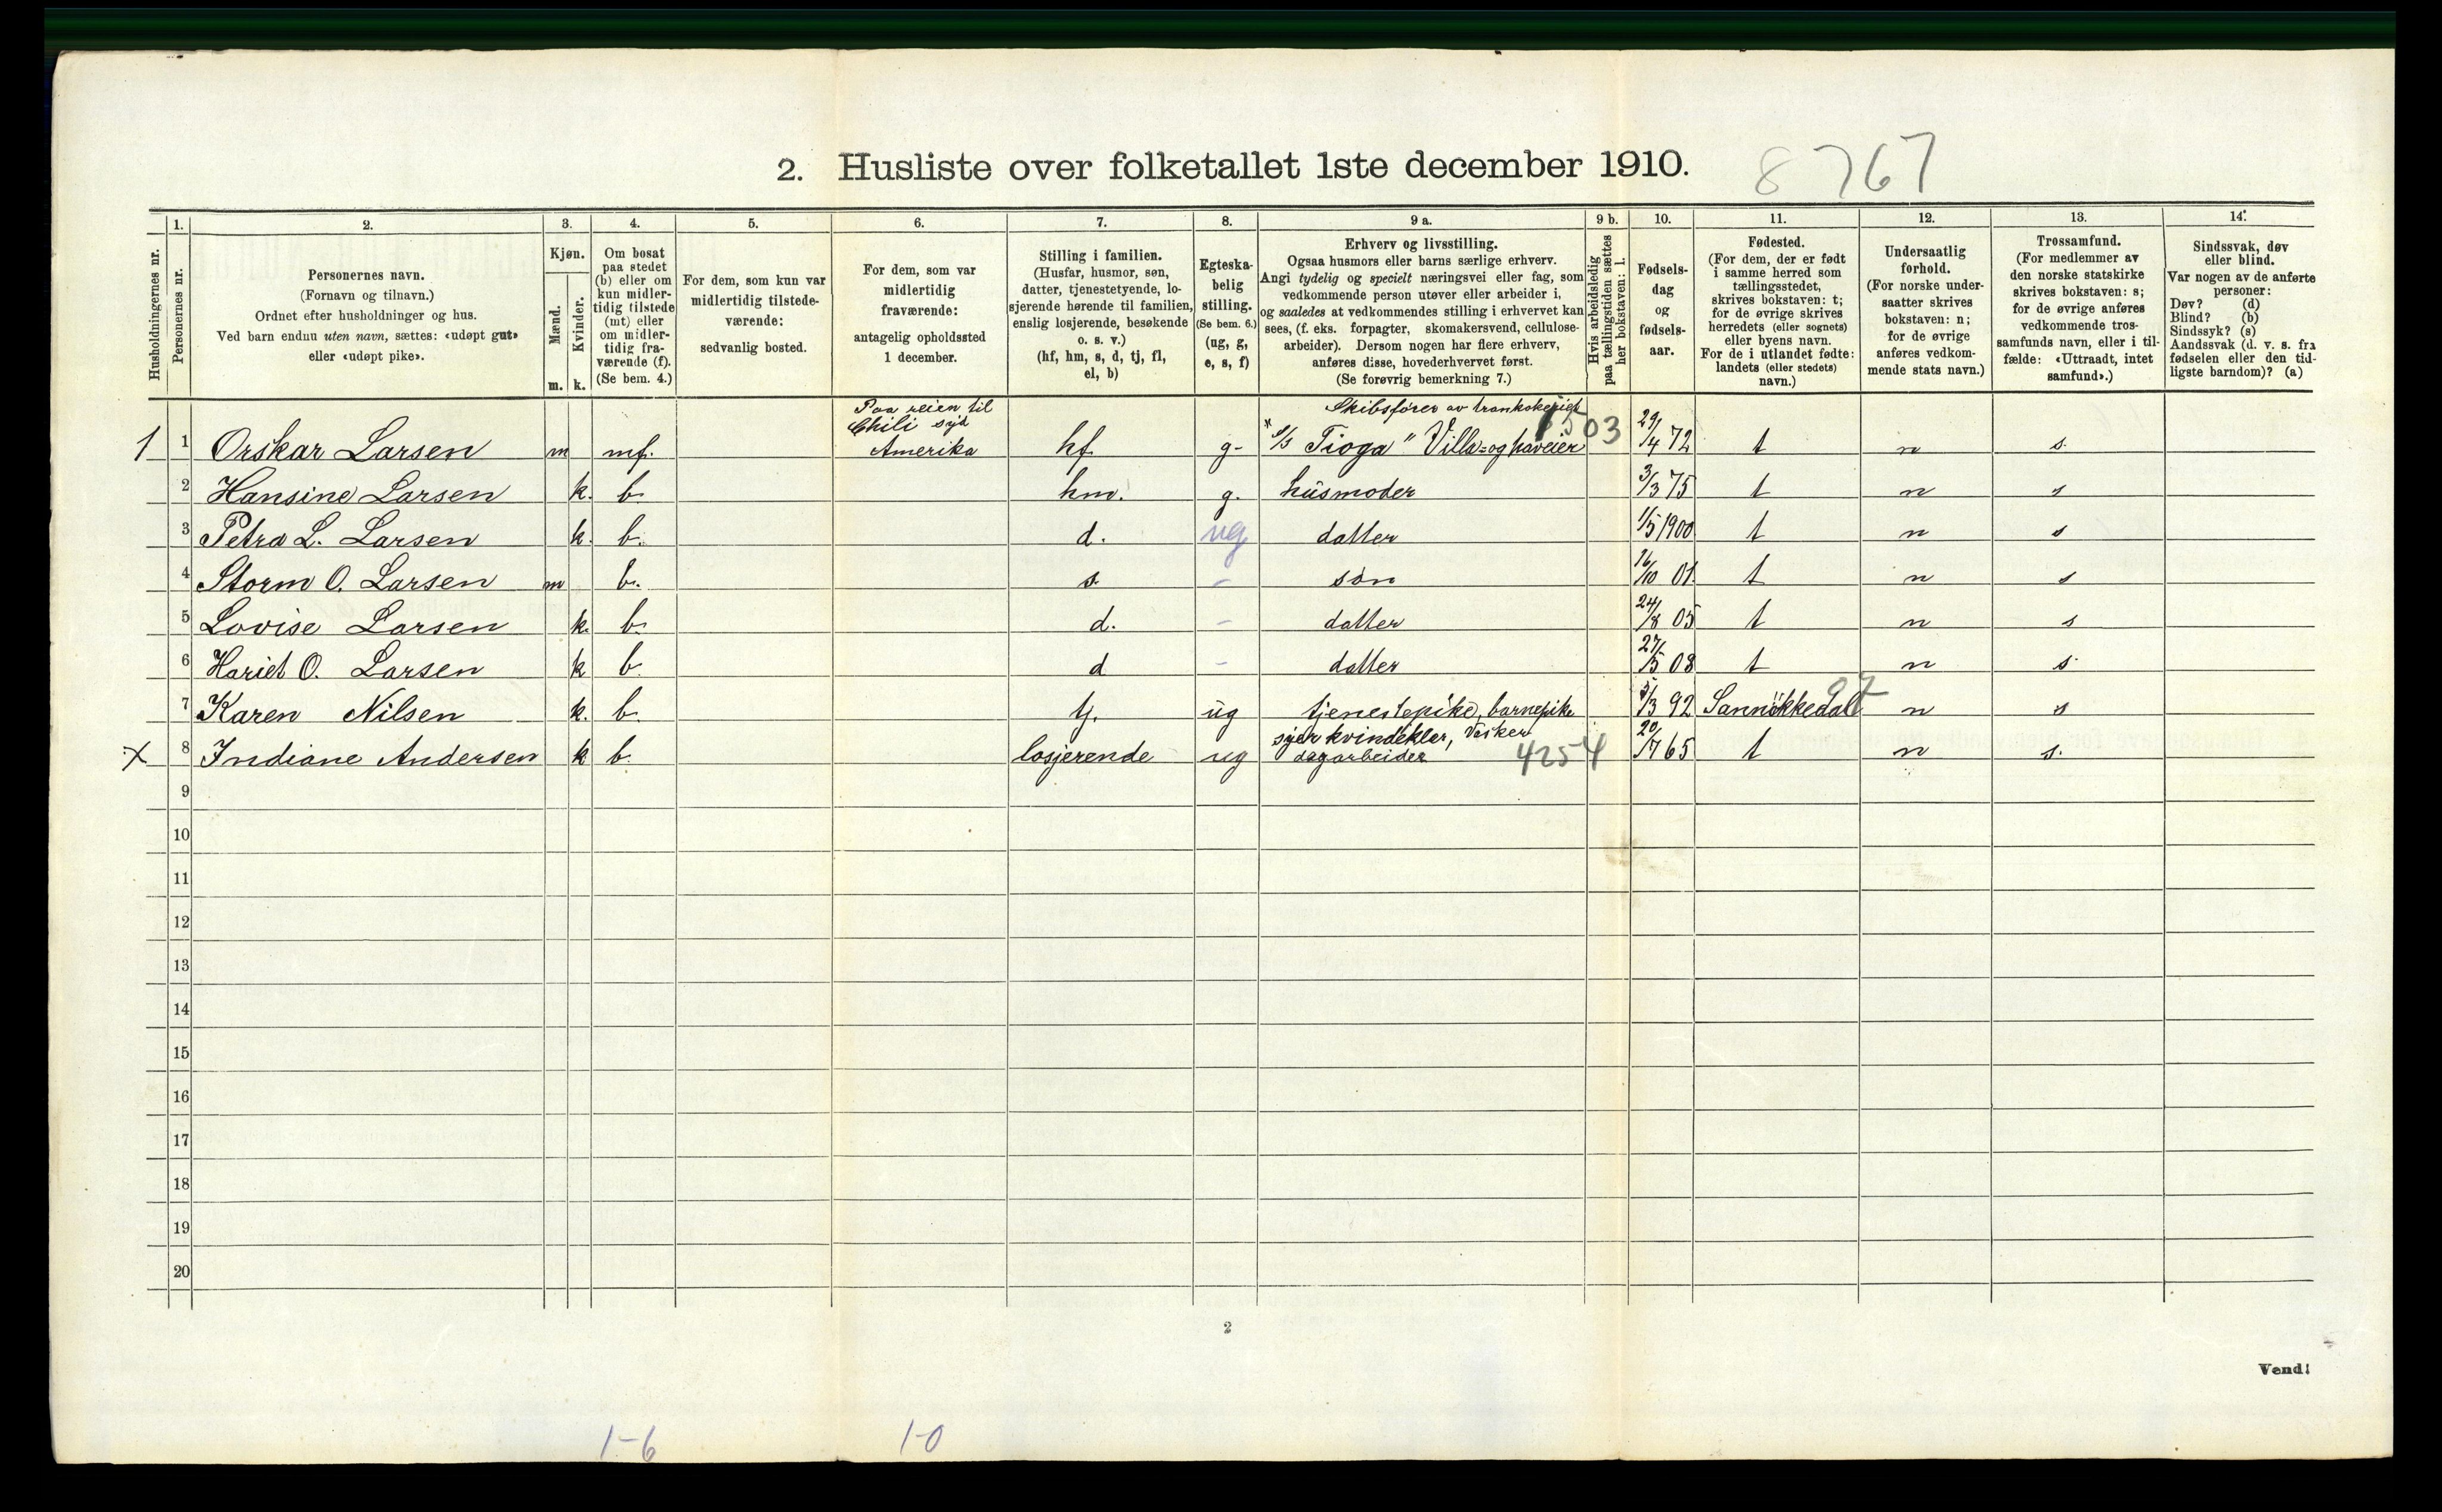 2. Husliste over folketallet 1ste december 1910. 8767
Husholdningernes nr.
1.
Personernes nr.
2.
Personernes navn.
(Fornavn og tilnavn.)
Ordnet efter husholdninger og hus.
Ved barn endnu uten navn, sættes: «udøpt gut»
eller «udøpt pike».
3.
Kjøn.
Mænd.
m.
Kvinder.
k.
4.
Om bosat
paa stedet
(b) eller om
kun midler-
tidig tilstede
(mt) eller
om midler-
tidig fra-
værende (f).
(Se bem. 4.)
5.
For dem, som kun var
midlertidig tilstede-
værende:
sedvanlig bosted.
6.
For dem, som var
midlertidig
fraværende:
antagelig opholdssted
1 december.
7.
Stilling i familien.
(Husfar, husmor, søn,
datter, tjenestetyende, lo-
sjerende hørende til familien,
enslig losjerende, besøkende
o. s. v.)
(hf, hm, s, d, tj, fl,
el, b)
8.
Egteska-
belig
stilling.
(Se bem. 6.)
(ug, g,
e, s, f)
9 a.
Erhverv og livsstilling.
Ogsaa husmors eller barns særlige erhverv.
Angi tydelig og specielt næringsvei eller fag, som
vedkommende person utøver eller arbeider i,
og saaledes at vedkommendes stilling i erhvervet kan
sees, (f. eks. forpagter, skomakersvend, cellulose-
arbeider). Dersom nogen har flere erhverv,
anføres disse, hovederhvervet først.
(Se forøvrig bemerkning 7.)
9 b.
Hvis arbeidsledig
paa tællingstiden sættes
her bokstaven: l.
10.
Fødsels-
dag
og
fødsels-
aar.
11.
Fødested.
(For dem, der er født
i samme herred som
tællingsstedet,
skrives bokstaven: t;
for de øvrige skrives
herredets (eller sognets)
eller byens navn.
For de i utlandet fødte:
landets (eller stedets)
navn.)
12.
Undersaatlig
forhold.
(For norske under-
saatter skrives
bokstaven: n;
for de øvrige
anføres vedkom-
mende stats navn.)
13.
Trossamfund.
(For medlemmer av
den norske statskirke
skrives bokstaven: s;
for de øvrige anføres
vedkommende tros-
samfunds navn, eller i til-
fælde: «Uttraadt, intet
samfund».)
14.
Sindssvak, døv
eller blind.
Var nogen av de anførte
personer:
Døv? (d)
Blind? (b)
Sindssyk? (s)
Aandssvak (d. v. s. fra
fødselen eller den tid-
ligste barndom)? (a)
Paa reien til Skibsfører av trankokeriet
Chili syd
1 1 Orskar Larsen m mf. Amerika hf g- S/S Tioga" Villa- og haveeier 29/4 72 t n s.
2 Hansine Larsen k. b. hm. g. husmoder 3/3 75 t n s
3 Petra L. Larsen k. b. d. ug datter 1/5 1900 t n s
4 Storm O. Larsen m b. s. – søn 16/10 01 t n s
5 Lovise Larsen k. b. d. – datter 24/8 05 t n s
6 Hariet O. Larsen k b. d – datter 27/5 08 t n s.
7 Karen Nilsen k. b. tj. ug tjenestepike, barnepike 5/3 92 Sannökkedal n s
syer kvindekler, Vasker
x 8 Indiane Andersen k b. losjerende ug dagarbeider 4254 20/7 65 t n s.
9
10
11
12
13
14
15
16
17
18
19
20
2
Vend!
1-6 1-0